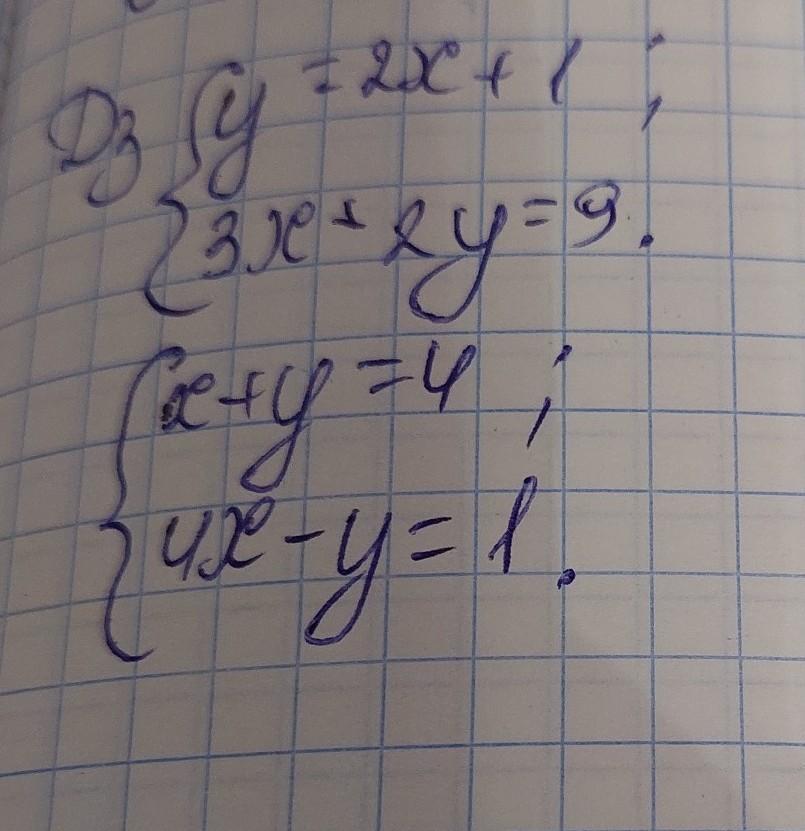 Дз { y = 2x + 1 ;
3x + 2y = 9.
{ x + y = 4 ;
4x - y = 1 .